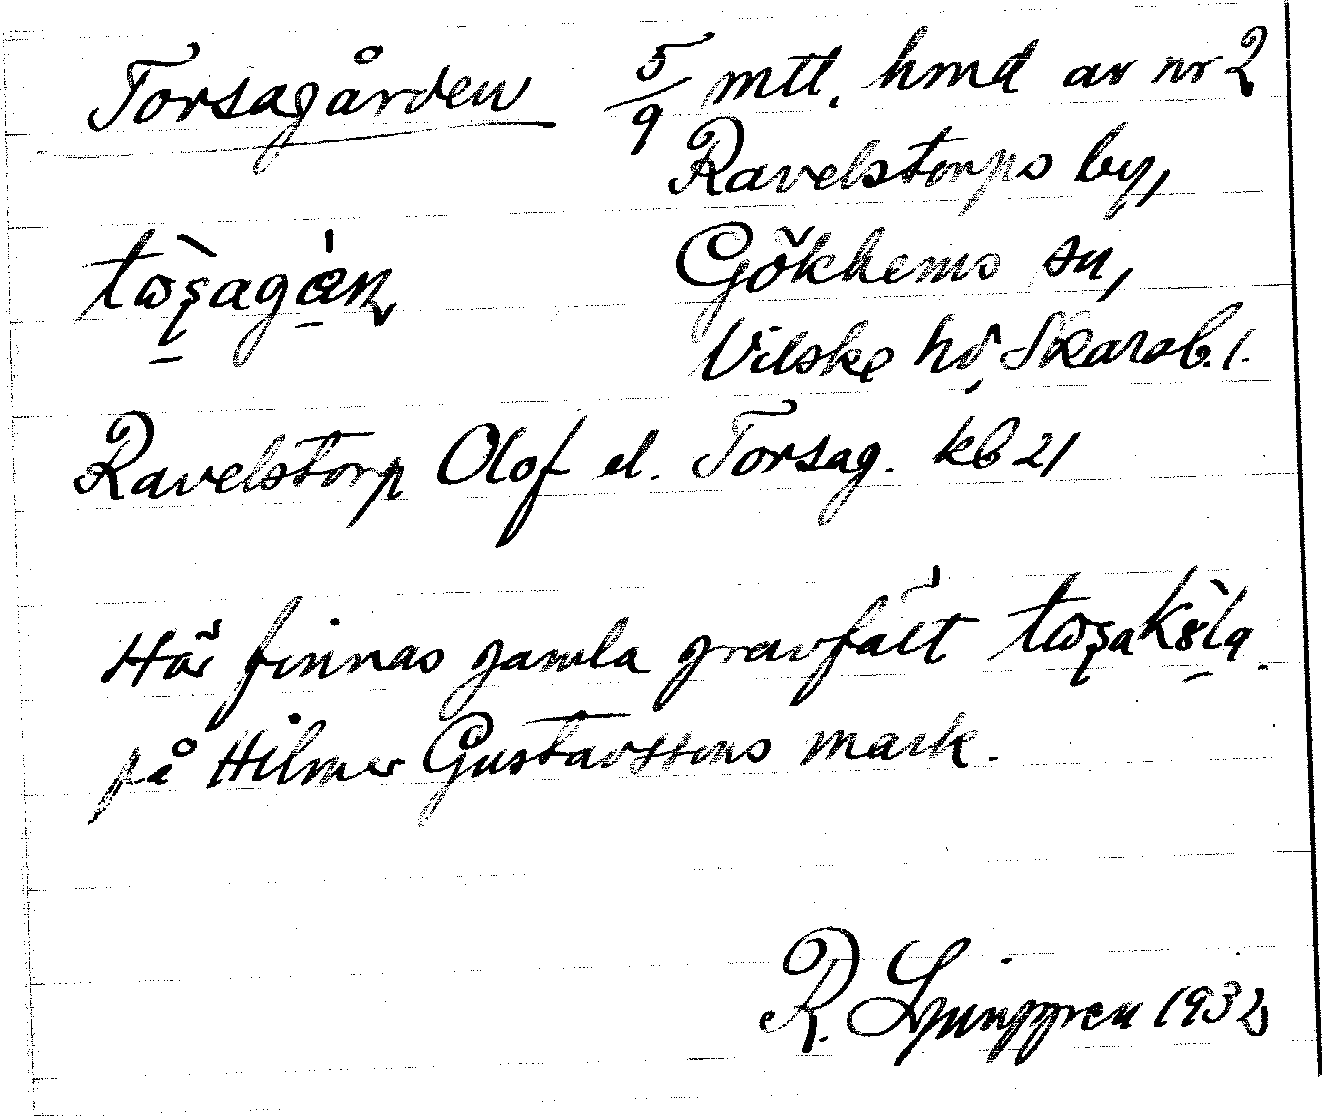 Torsagården 5/9 mtl. hmd av nr 2
Ravelstorps by,
Gökhems sn,
Vilske hd, Skarab. l.
Ravelstorp Olof el. Torsag. kb 21
Här finnas gamla gravfält
på Hilmer Gustavssons mark.
R. Ljunggren 1932